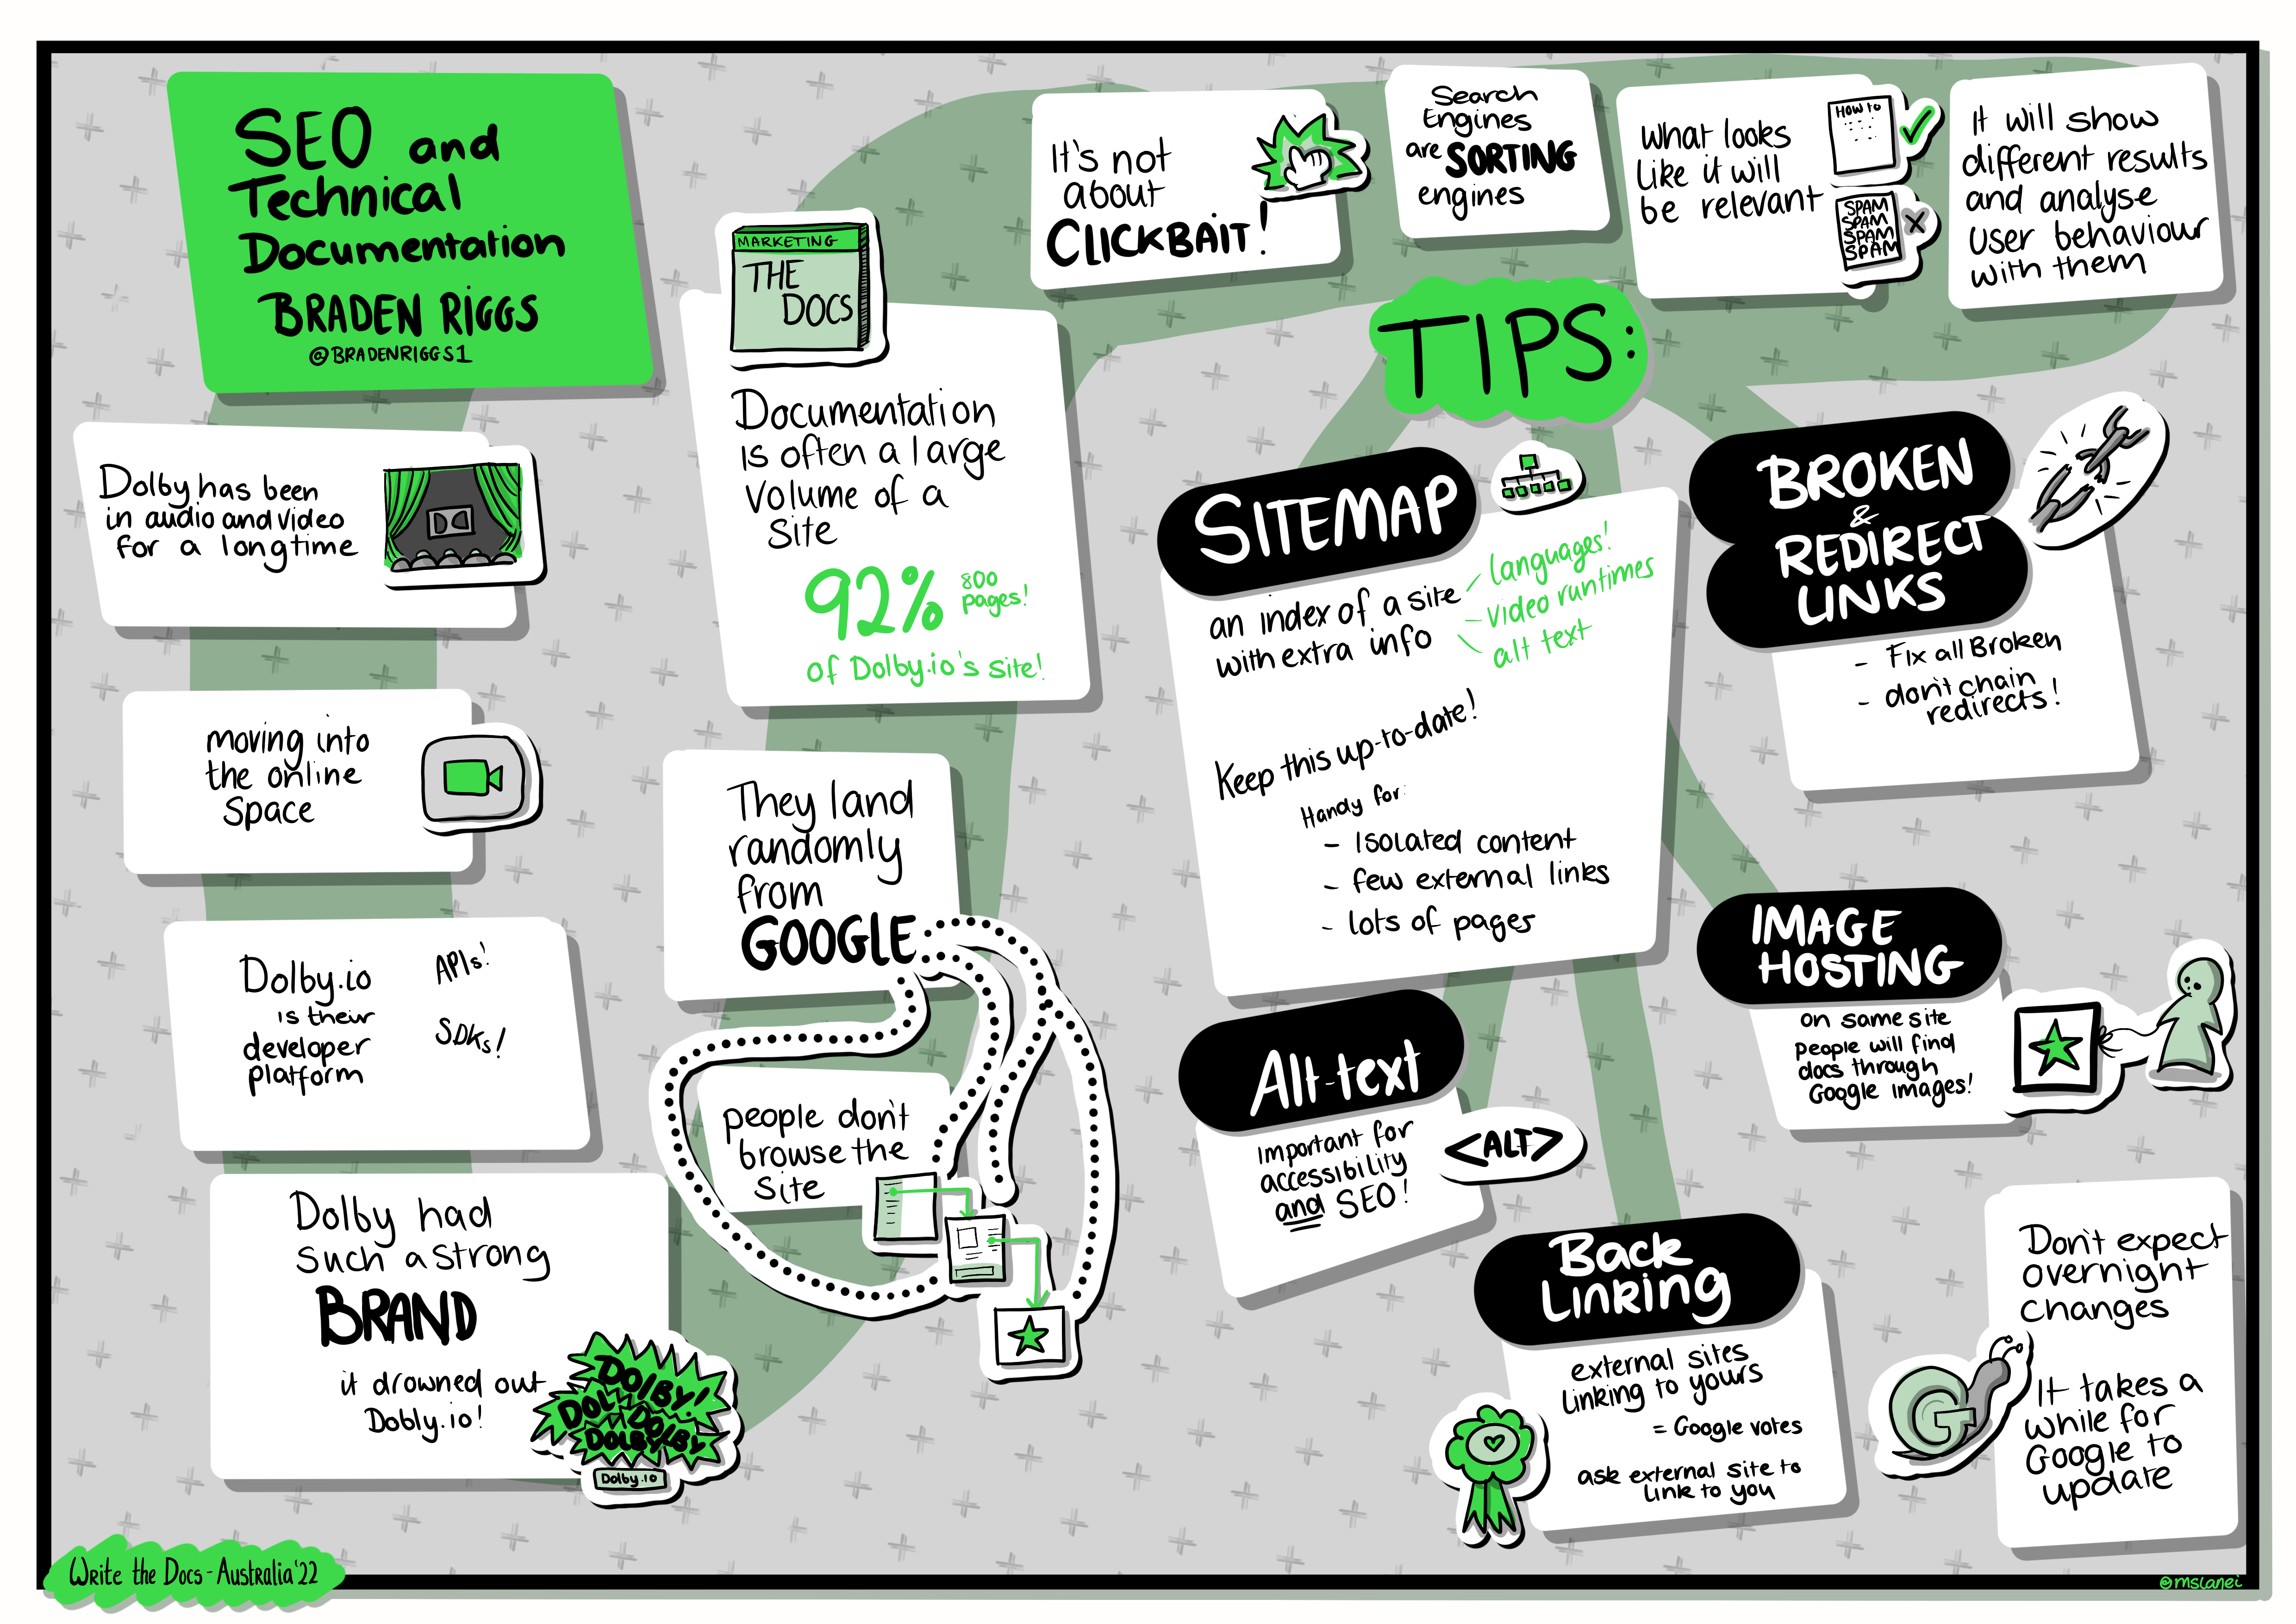 SEO and
Technical
Documentation
BRADEN RIGGS
@BRADENRIGGS1
Dolby has been
in audio and video
for a longtime
moving into
the online
space
Dolby.io
is their
developer
platform
APIs!
SDKs!
Dolby had
such a strong
BRAND
it drowned out
Dobly.io!
DOLBY!
DOL
DOLBY
DOLBY
Dolby.io
MARKETING
THE
DOCS
Documentation
is often a large
volume of a
site
92%
800
pages!
of Dolby.io's site!
They land
randomly
from
GOOGLE
people don't
browse the
site
It's not
about
CLICKBAIT!
Search
Engines
are SORTING
engines
What looks
like it will
be relevant
HOW TO
SPAM
SPAM
SPAM
SPAM
It will show
different results
and analyse
user behaviour
with them
TIPS:
SITEMAP
an index of a site
with extra info
languages!
video runtimes
alt text
Keep this up-to-date!
Handy for:
- Isolated content
- few external links
- lots of pages
BROKEN
&
REDIRECT
LINKS
- Fix all Broken
- don't chain
redirects!
IMAGE
HOSTING
on same site
people will find
docs through
Google images!
Alt-text
important for
accessibility
and SEO!
<ALT>
Back
Linking
external sites
linking to yours
= Google votes
ask external site to
link to you
Don't expect
overnight
changes
It takes a
while for
Google to
update
G
Write the Docs - Australia '22
@mslanei